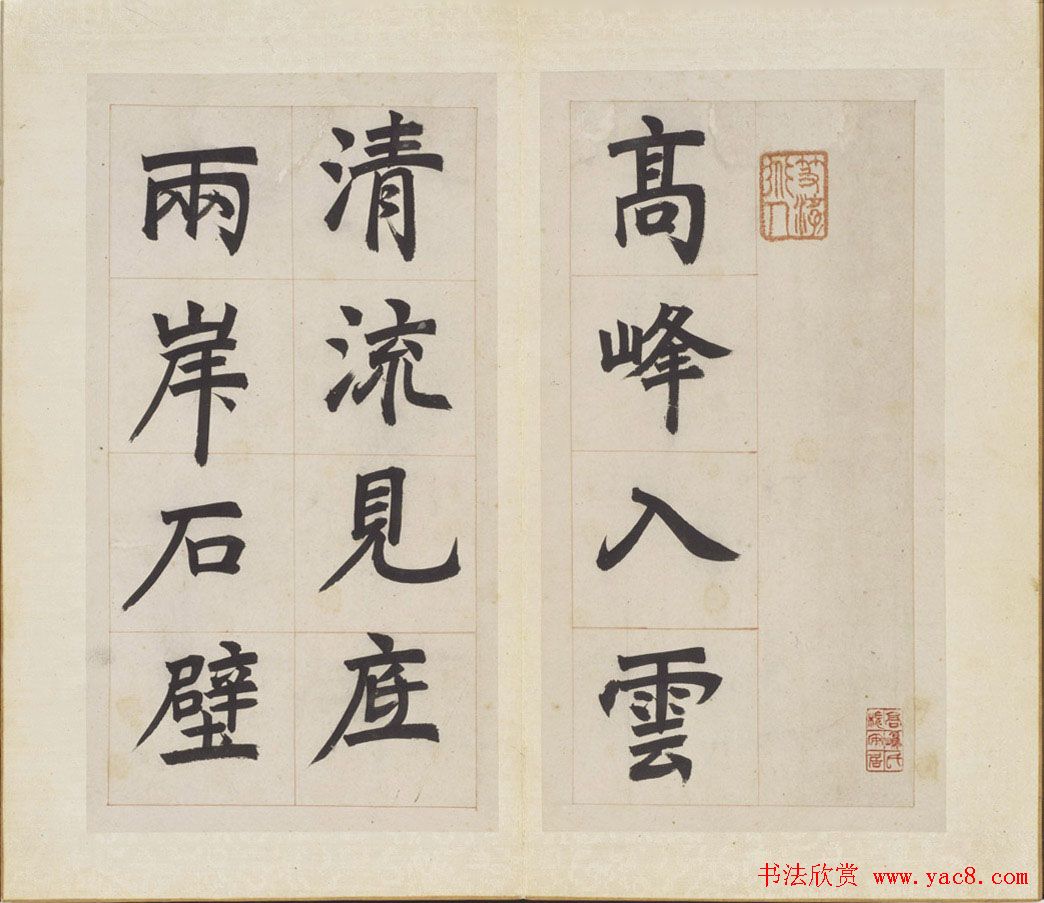 髙峰入雲
清流見底
兩岸石壁
书法欣赏 www.yac8.com